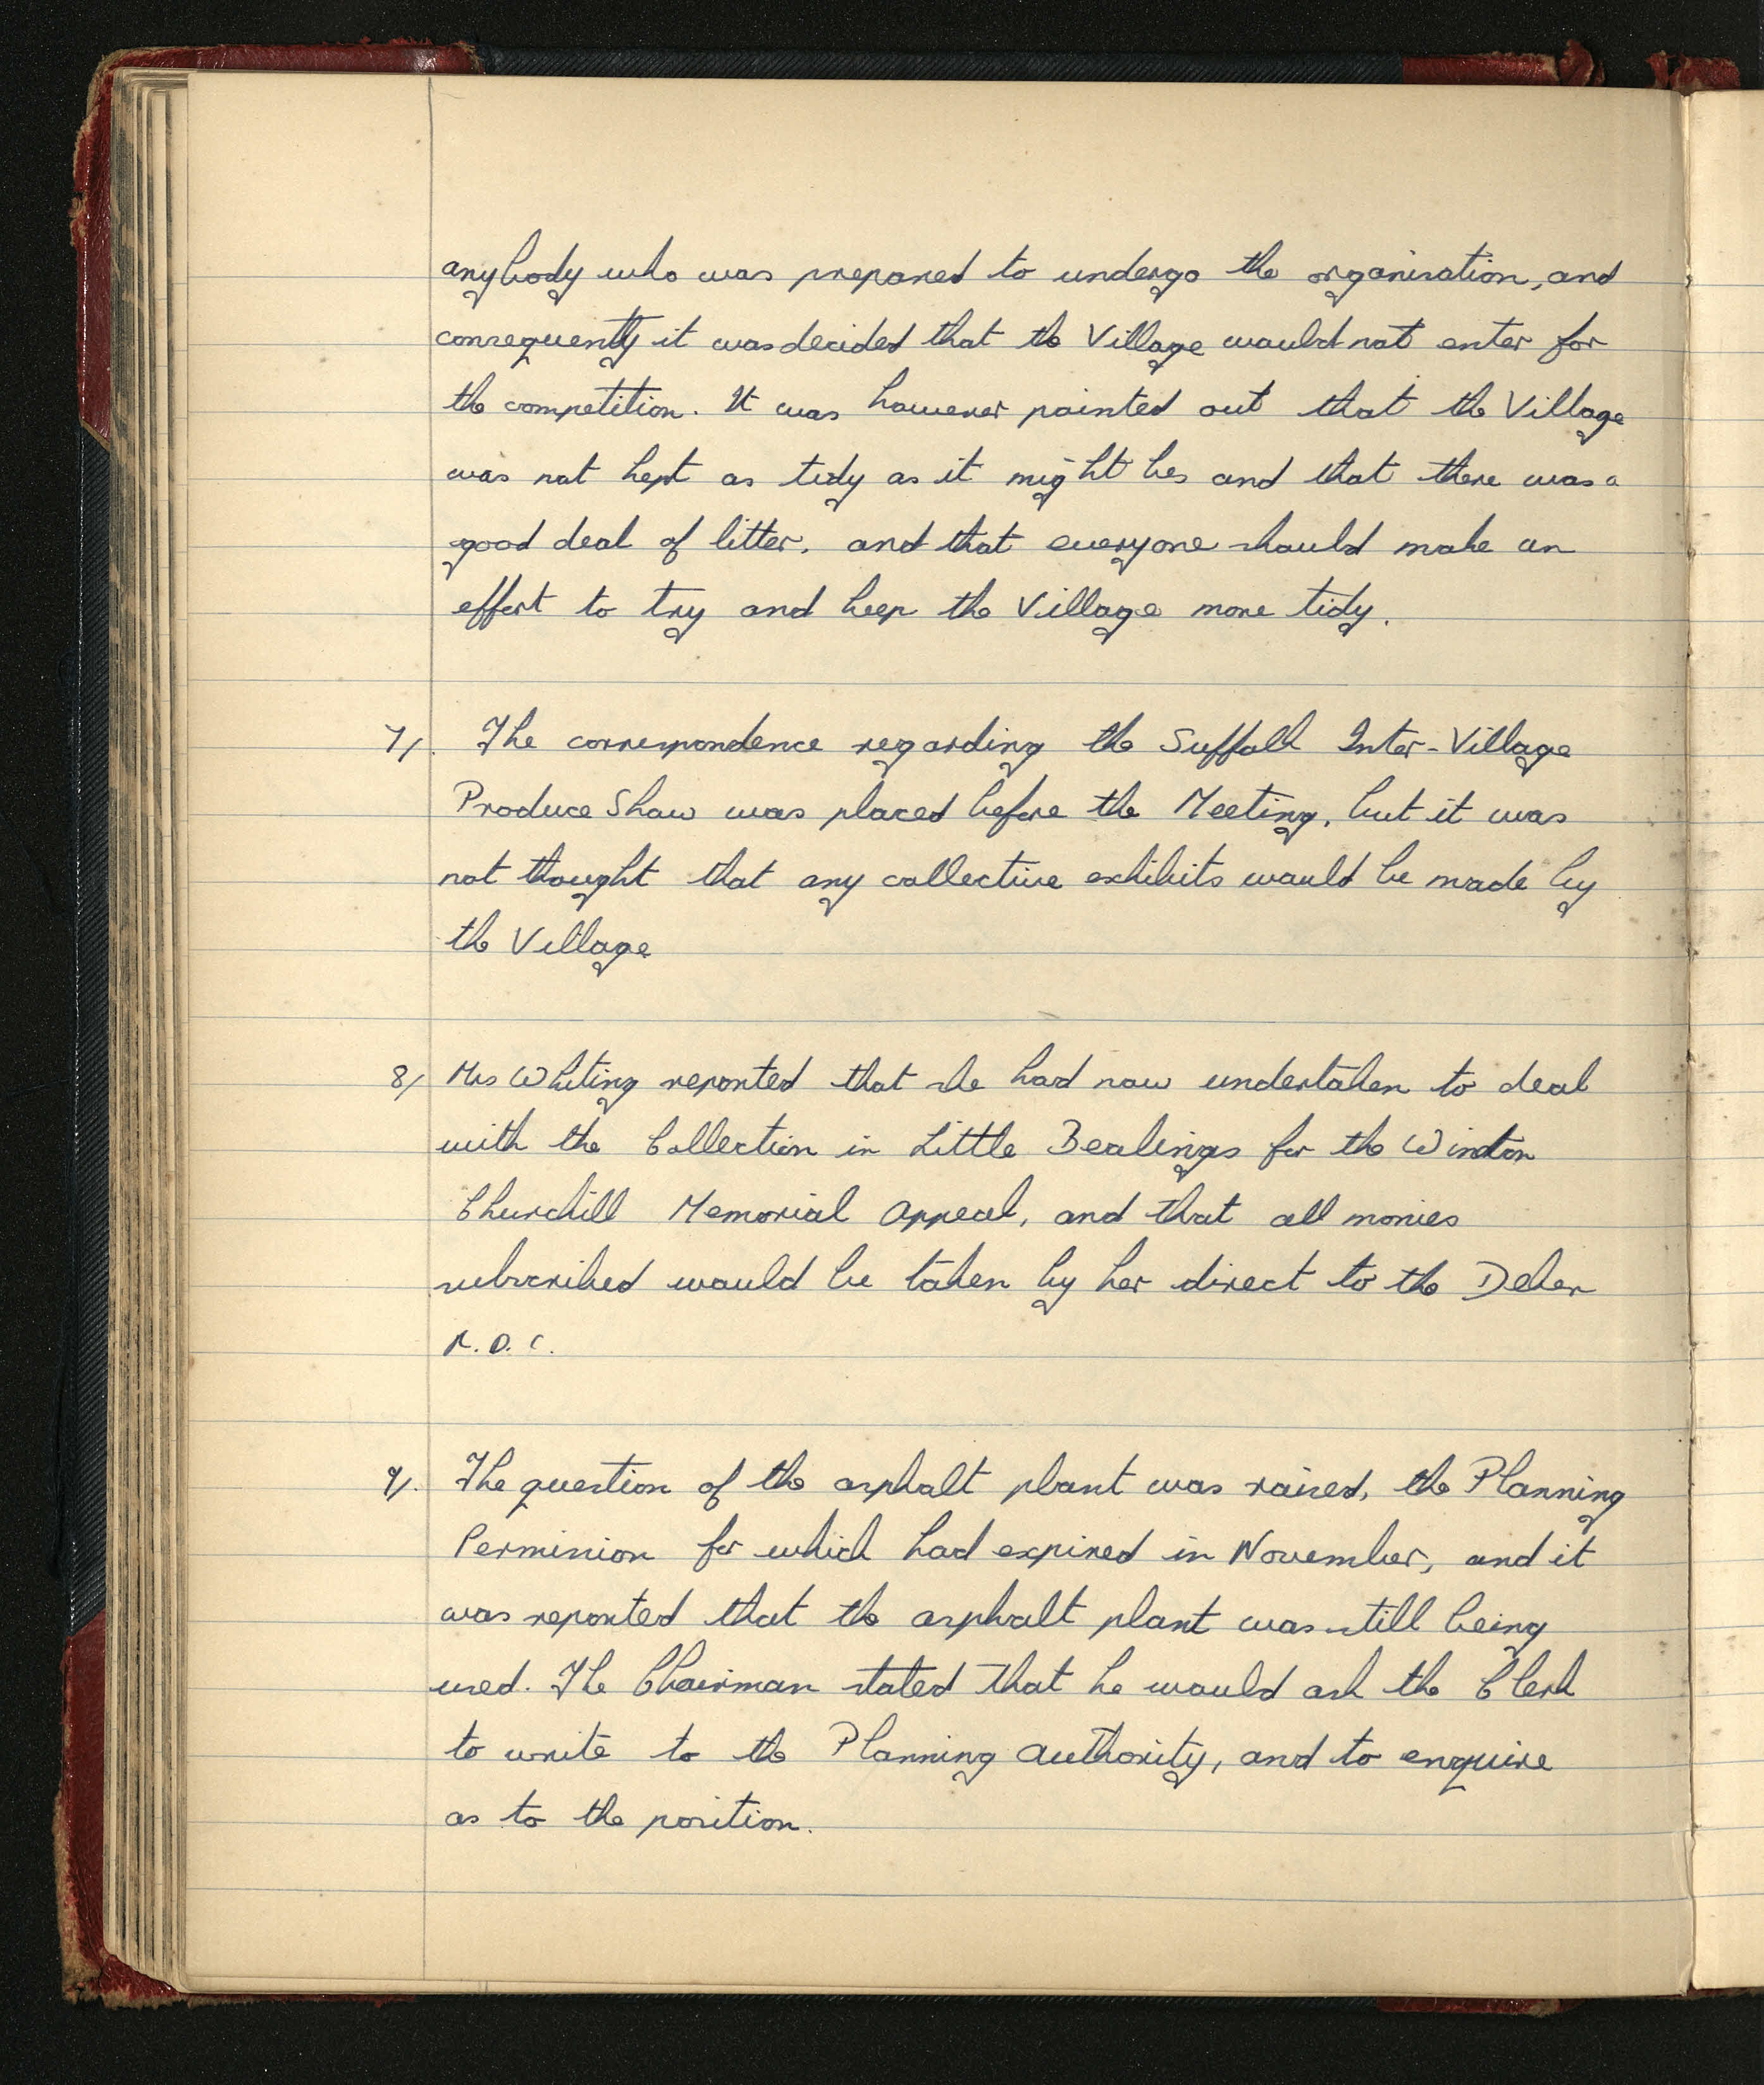 anybody who was prepared to undergo the organisation, and
consequently it was decided that the Village would not enter for
the competition. It was however pointed out that the Village
was not kept as tidy as it might be and that there was a
good deal of litter, and that everyone should make an
effort to try and keep the Village more tidy.
7/. The correspondence regarding the Suffolk Inter-Village
Produce Show was placed before the Meeting, but it was
not thought that any collective exhibits would be made by
the Village
8/ Mrs Whiting reported that she had now undertaken to deal
with the Collection in Little Bealings for the Winston
Churchill Memorial Appeal, and that all monies
subscribed would be taken by her direct to the Deben
R.D.C.
9/. The question of the asphalt plant was raised, the Planning
Permission for which had expired in November, and it
was reported that the asphalt plant was still being
used. The Chairman stated that he would ask the Clerk
to write to the Planning Authority, and to enquire
as to the position.